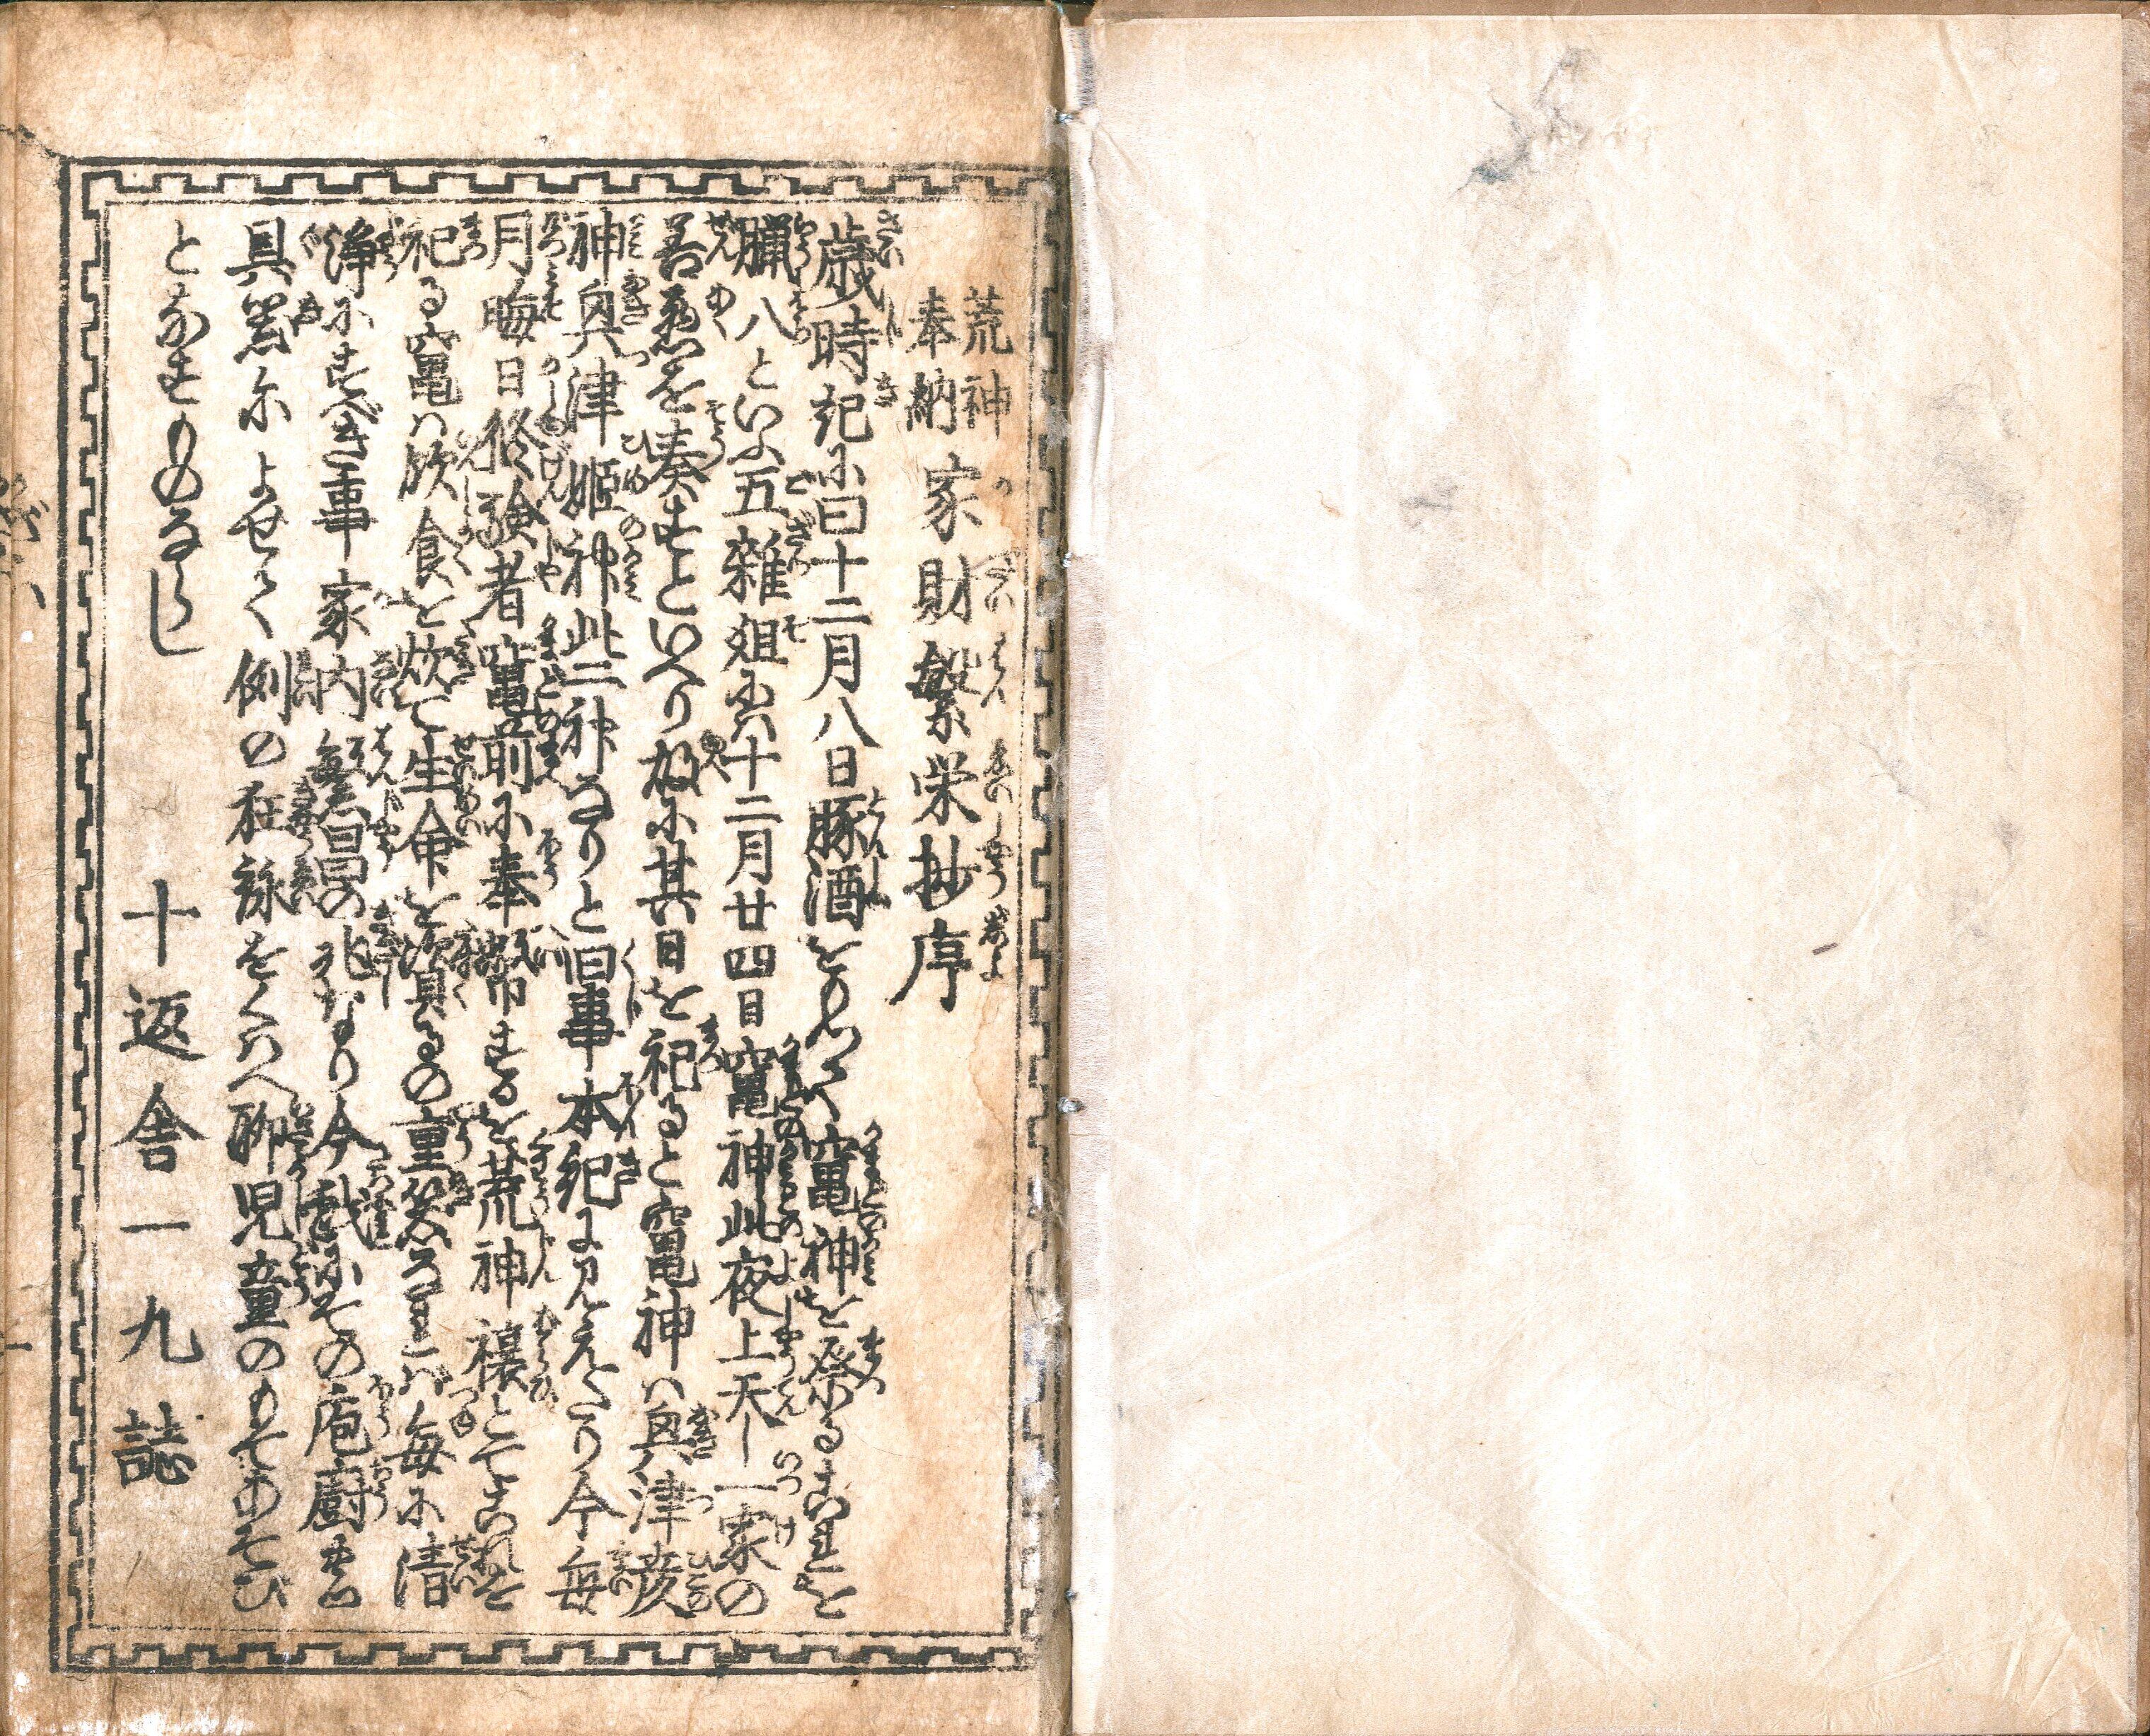 荒神
奉納
家財繁栄抄序
歳時記に曰十二月八日豚酒をもつて竈神を祭るこれを
臘八といふ五雑爼には十二月廿四日竈神此夜上天し一家の
善悪を奏すといへり故に其日を祀ると竈神は奥津彦
神奥津姫神此二神なりと旧事本紀に見えたり今毎
月晦日修験者竈前に奉幣するを荒神祓とてこれを
祀る竈は飲食を炊て生命を資るの重器なれば毎に清
浄にすべき事家内繁昌の兆なり今戯にその庖厨
具器によせて例の狂詠をくはへ聊児童のもてあそび
となすものならし
十返舎一九誌